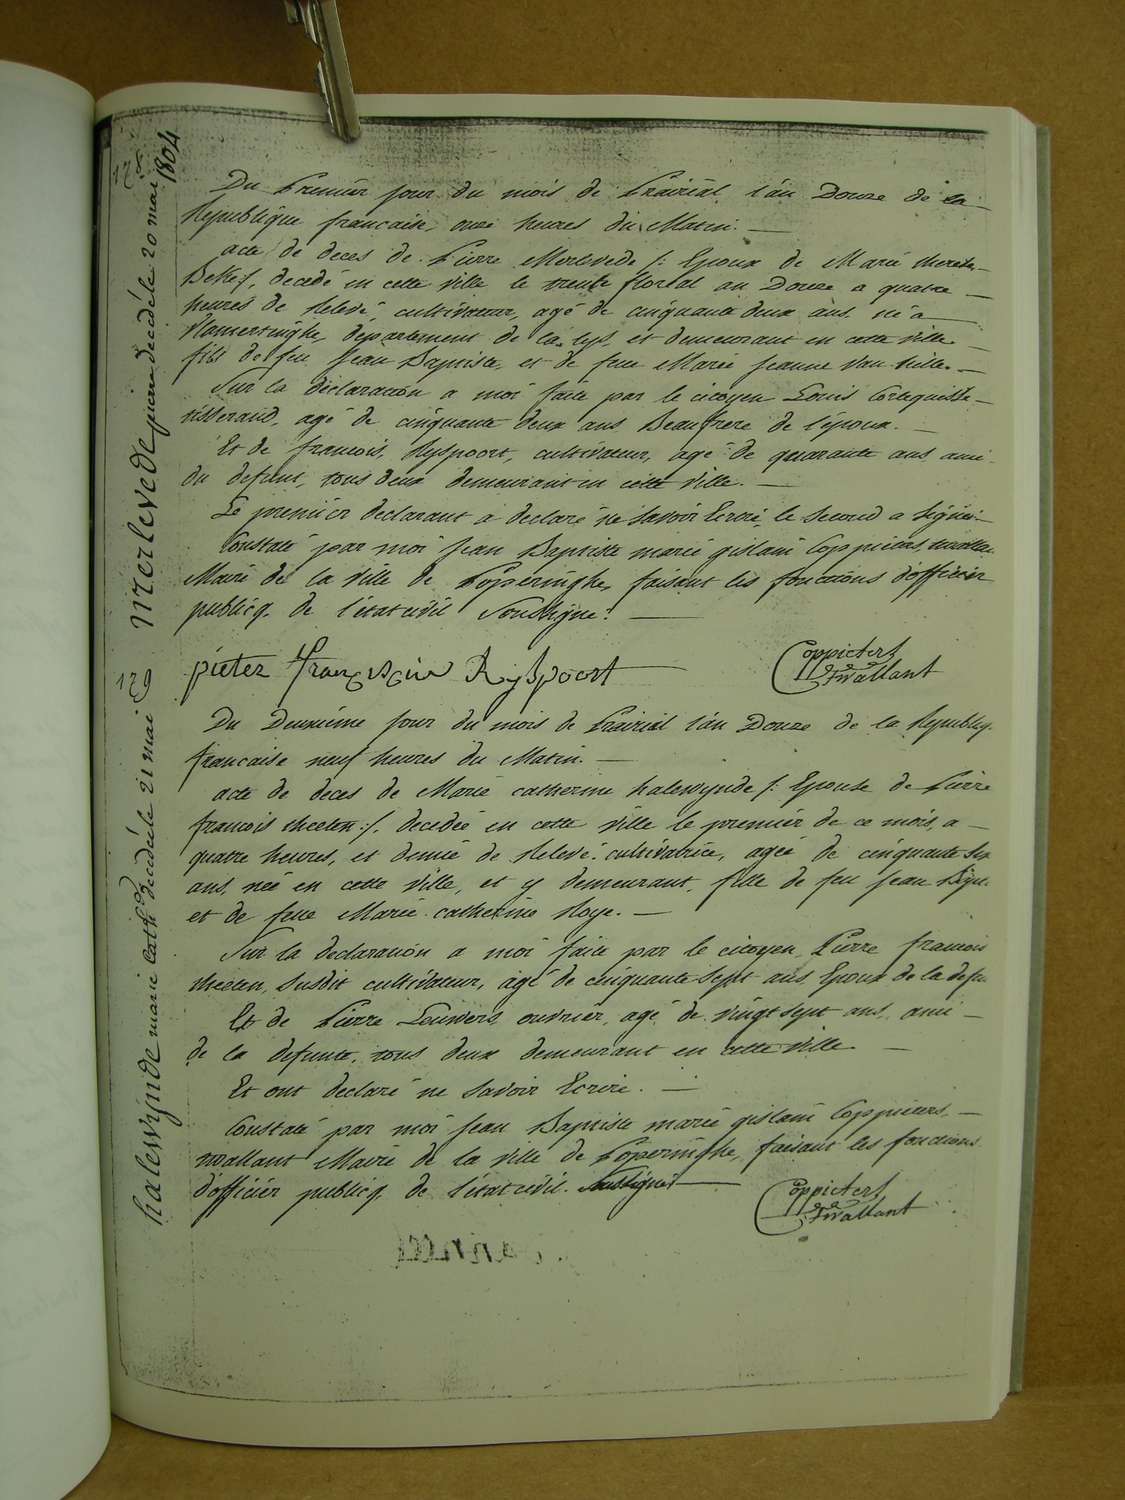 128
Merlevede pierre decédé le 20 mai 1804
Du Premier jour du mois de Prairial l'an Douze de la
Republique française, onze heures du Matin.
acte de deces de Pierre Merlevede /: Epoux de Marie therese
Beke:/, decedé en cette ville le trente floréal an Douze a quatre
heures de Relevé, cultivateur, agé de cinquante deux ans né a
Vlamertinghe, departement de la Lys, et demeurant en cette ville
fils de feu Jean Baptiste, et de feue Marie Jeanne Van hille.
Sur la déclaration a moi faite par le citoyen Louis
tisserand, agé de cinquante deux ans Beaufrere de l'époux.
Et de francois Ryspoort, cultivateur, agé de quarante ans ami
du defunt, tous deux demeurant en cette ville.
Le premier declarant a declaré ne savoir Ecrire le second a signé.
Constaté par moi Jean Baptiste marie gislain Coppieters, twallant
Maire de la ville de Poperinghe, faisant les fonctions d'officier
publicq de l'état civil Soussigné.
pieter Franciscus Ryspoort
Coppieters
Twallant
129
halewynde marie cath: decédé le 21 mai
Du Deuxiéme jour du mois de Prairial l'an Douze de la Republiq.
francaise neuf heures du Matin.
acte de deces de Marie catherine halewynde /: Epouse de Pierre
francois theeten:/, decedée en cette ville le premier de ce mois, a
quatre heures, et demie de Relevé. cultivatrice, agée de cinquante six
ans, née en cette ville, et y demeurant, fille de feu Jean Bapt.
et de feue Marie catherine Roye.
Sur la declaration a moi faite par le citoyen Pierre francois
theeten, susdit cultivateur, agé de cinquante sept ans, Epoux de la defu.
Et de Pierre Louwers ouvrier, agé de vingt sept ans, ami
de la defunte, tous deux demeurant en cette ville
Et ont declaré ne savoir Ecrire.
Constaté par moi Jean Baptiste marie gislain Coppieters
twallant Maire de la ville de Poperinghe, faisant les fonctions
d'officier publicq de l'état civil. Soussigné
Coppieters
Twallant